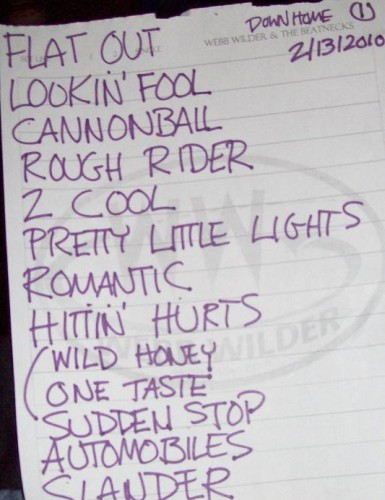 DOWN HOME 1
WEBB WILDER & THE BEATNECKS
2/13/2010
FLAT OUT
LOOKIN' FOOL
CANNONBALL
ROUGH RIDER
2 COOL
PRETTY LITTLE LIGHTS
ROMANTIC
HITTIN' HURTS
WILD HONEY
ONE TASTE
SUDDEN STOP
AUTOMOBILES
SLANDER
WEBB WILDER